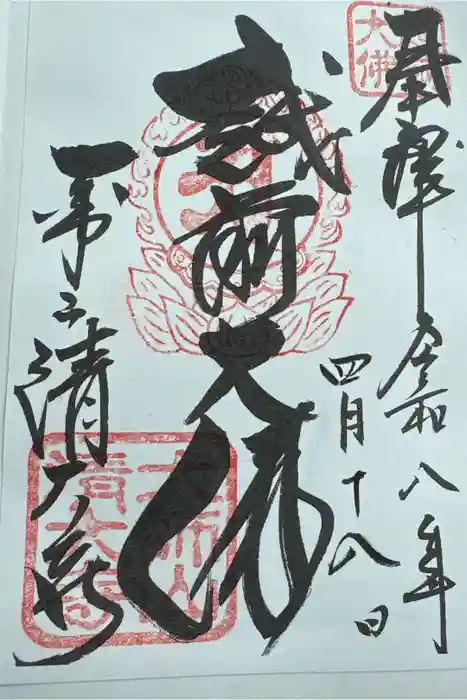 奉拝 令和八年
四月十八日
越前大佛
師子山清大寺
大佛